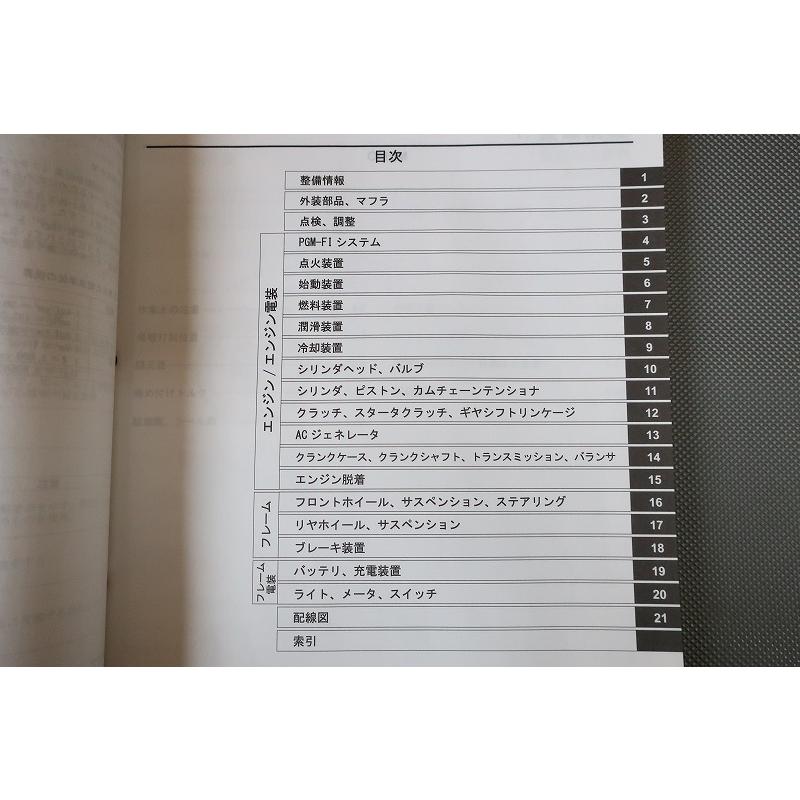 目次
整備情報 1
外装部品、マフラ 2
点検、調整 3
エンジン/エンジン電装
PGM-FI システム 4
点火装置 5
始動装置 6
燃料装置 7
潤滑装置 8
冷却装置 9
シリンダヘッド、バルブ 10
シリンダ、ピストン、カムチェーンテンショナ 11
クラッチ、スタータクラッチ、ギヤシフトリンケージ 12
AC ジェネレータ 13
クランクケース、クランクシャフト、トランスミッション、バランサ 14
エンジン脱着 15
フレーム
フロントホイール、サスペンション、ステアリング 16
リヤホイール、サスペンション 17
ブレーキ装置 18
フレーム電装
バッテリ、充電装置 19
ライト、メータ、スイッチ 20
配線図 21
索引